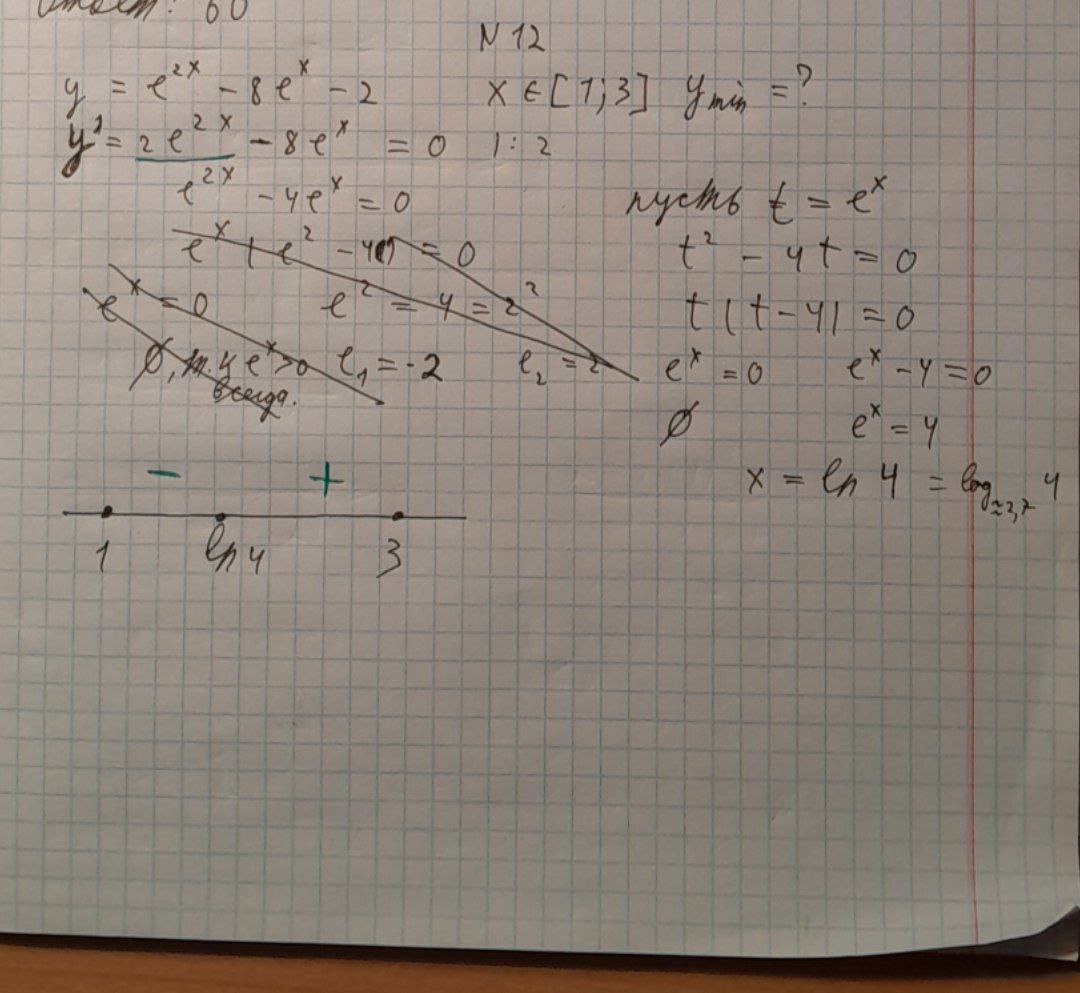 Ответ: 60
N 12
y = e^{2x} - 8e^x - 2    x ∈ [1;3]    y_{min} = ?
y' = 2e^{2x} - 8e^x = 0    |: 2
e^{2x} - 4e^x = 0
e^x (e^2 - 4) = 0
e^x = 0    e^2 = 4 = 2^2
∅, т.к e^x>0    e_1 = -2    e_2 = 2
всегда.
пусть t = e^x
t^2 - 4t = 0
t (t - 4) = 0
e^x = 0    e^x - 4 = 0
∅    e^x = 4
x = ln 4 = log_{≈2,7} 4
-    +
1    ln 4    3